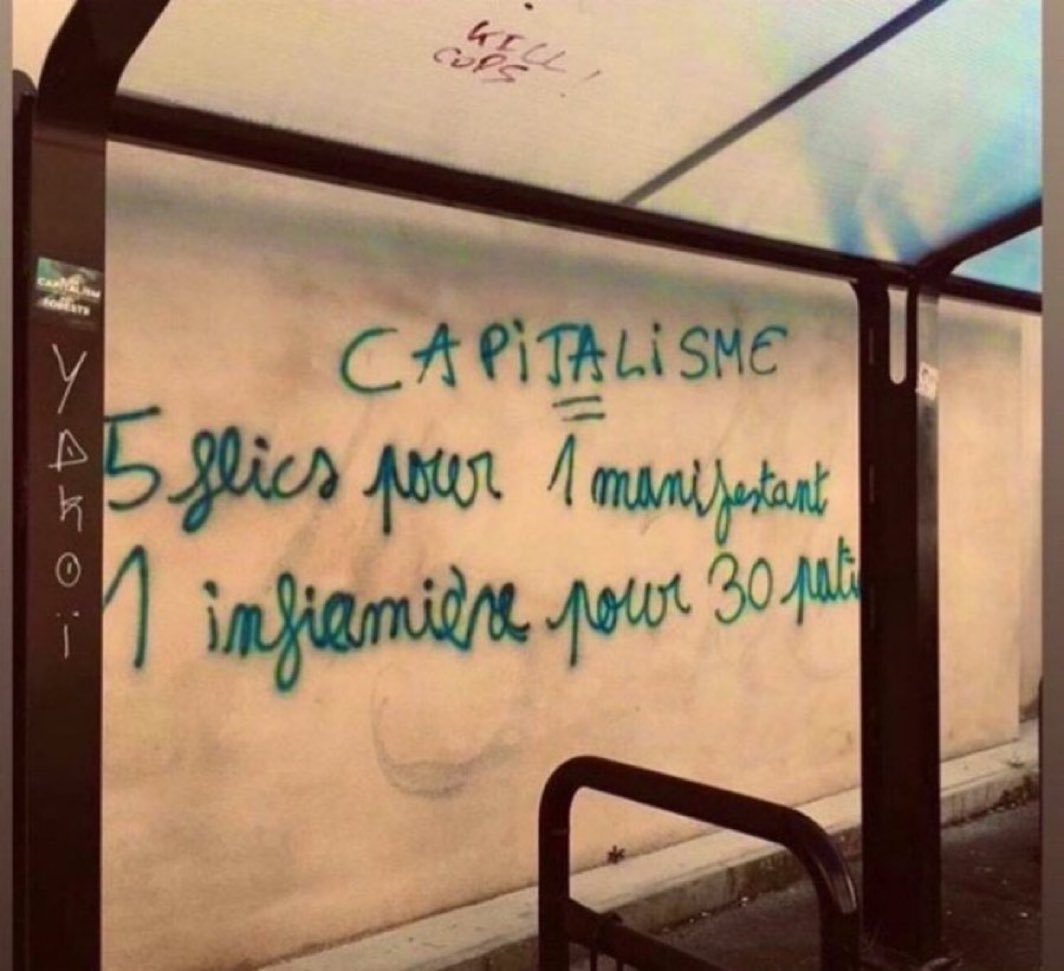 KILL
COPS !
CAPiTALiSME
5 flics pour 1 manifestant
1 infirmière pour 30 pati
YAKOÏ
CAPITALISM
FORESTS